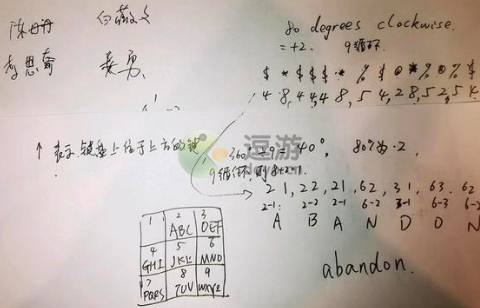 陈丹丹
80 degrees clockwise.
= +2. 9循环.
李思
姜勇
$ * $ $ $ * % $ @ * % @ % $
4 8, 4 4, 4 8, 5 4, 2 8, 5 2, 5
↑ 表示键盘上位于上方的键
360÷9=40°, 80°为+2.
9循环, 则8+2=1.
逗游
21, 22, 21, 62, 31, 63, 62
2-1 2-2 2-1 6-2 3-1 6-3 6-2
A B A N D O N
1 2 3
ABC DEF
4 5 6
GHI JKL MNO
7 8 9
PQRS TUV WXYZ
abandon.